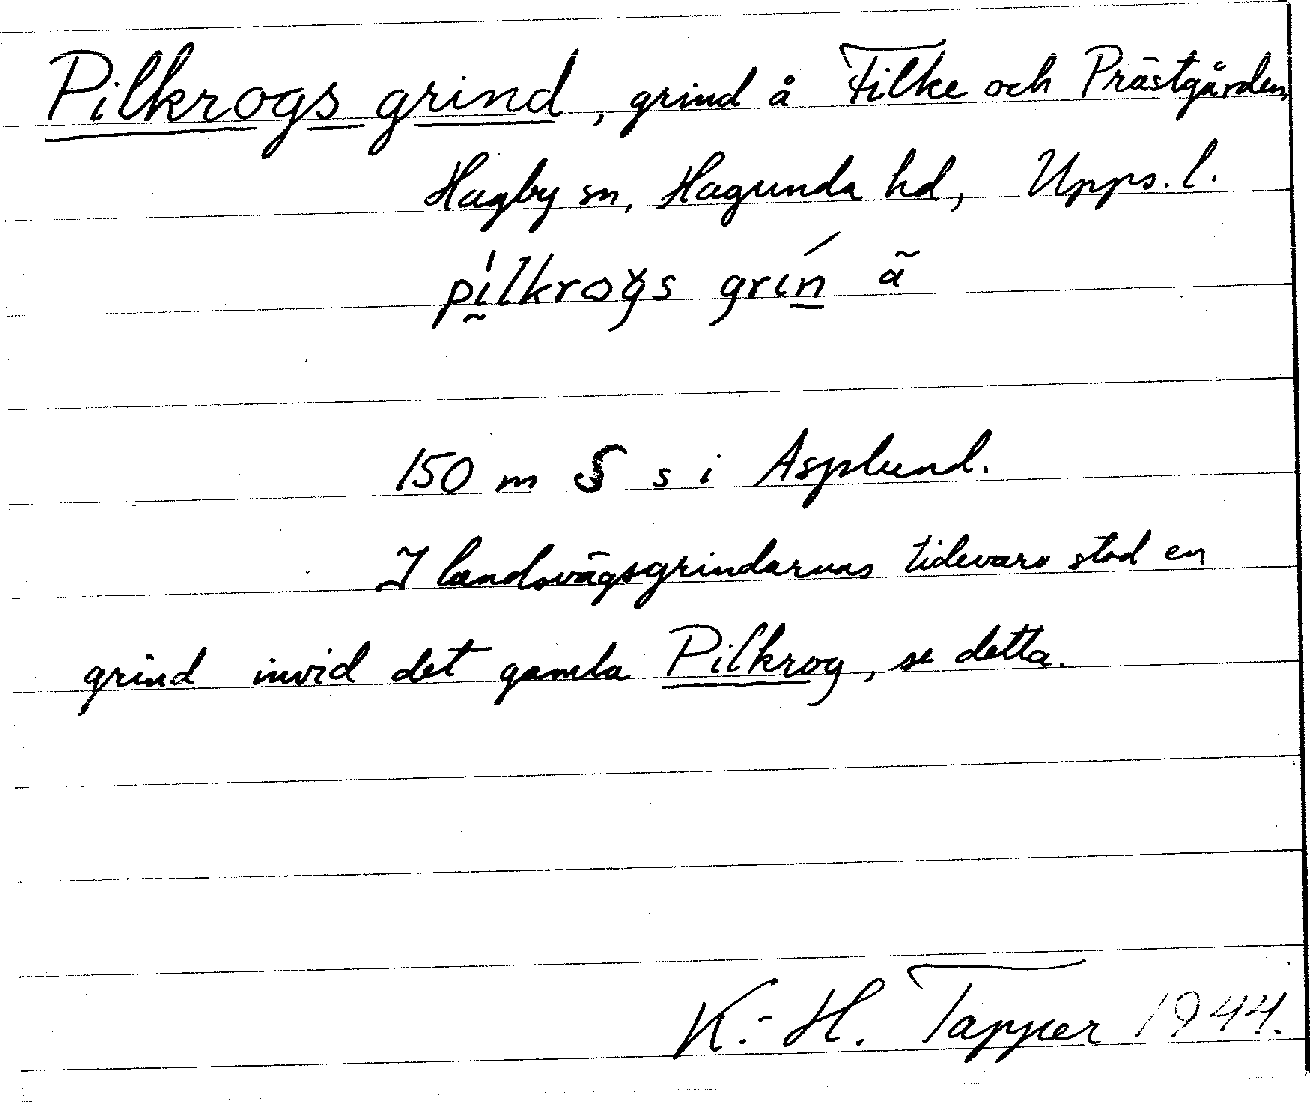 Pilkrogs grind, grind å Filke och Prästgården,
Hagby sn, Hagunda hd, Upps. l.
pilkrogs grin ã
150 m S s i Asplund.
I landsvägsgrindarnas tidevarv stod en
grind invid det gamla Pilkrog, se detta.
K.-H. Tapper 1944.